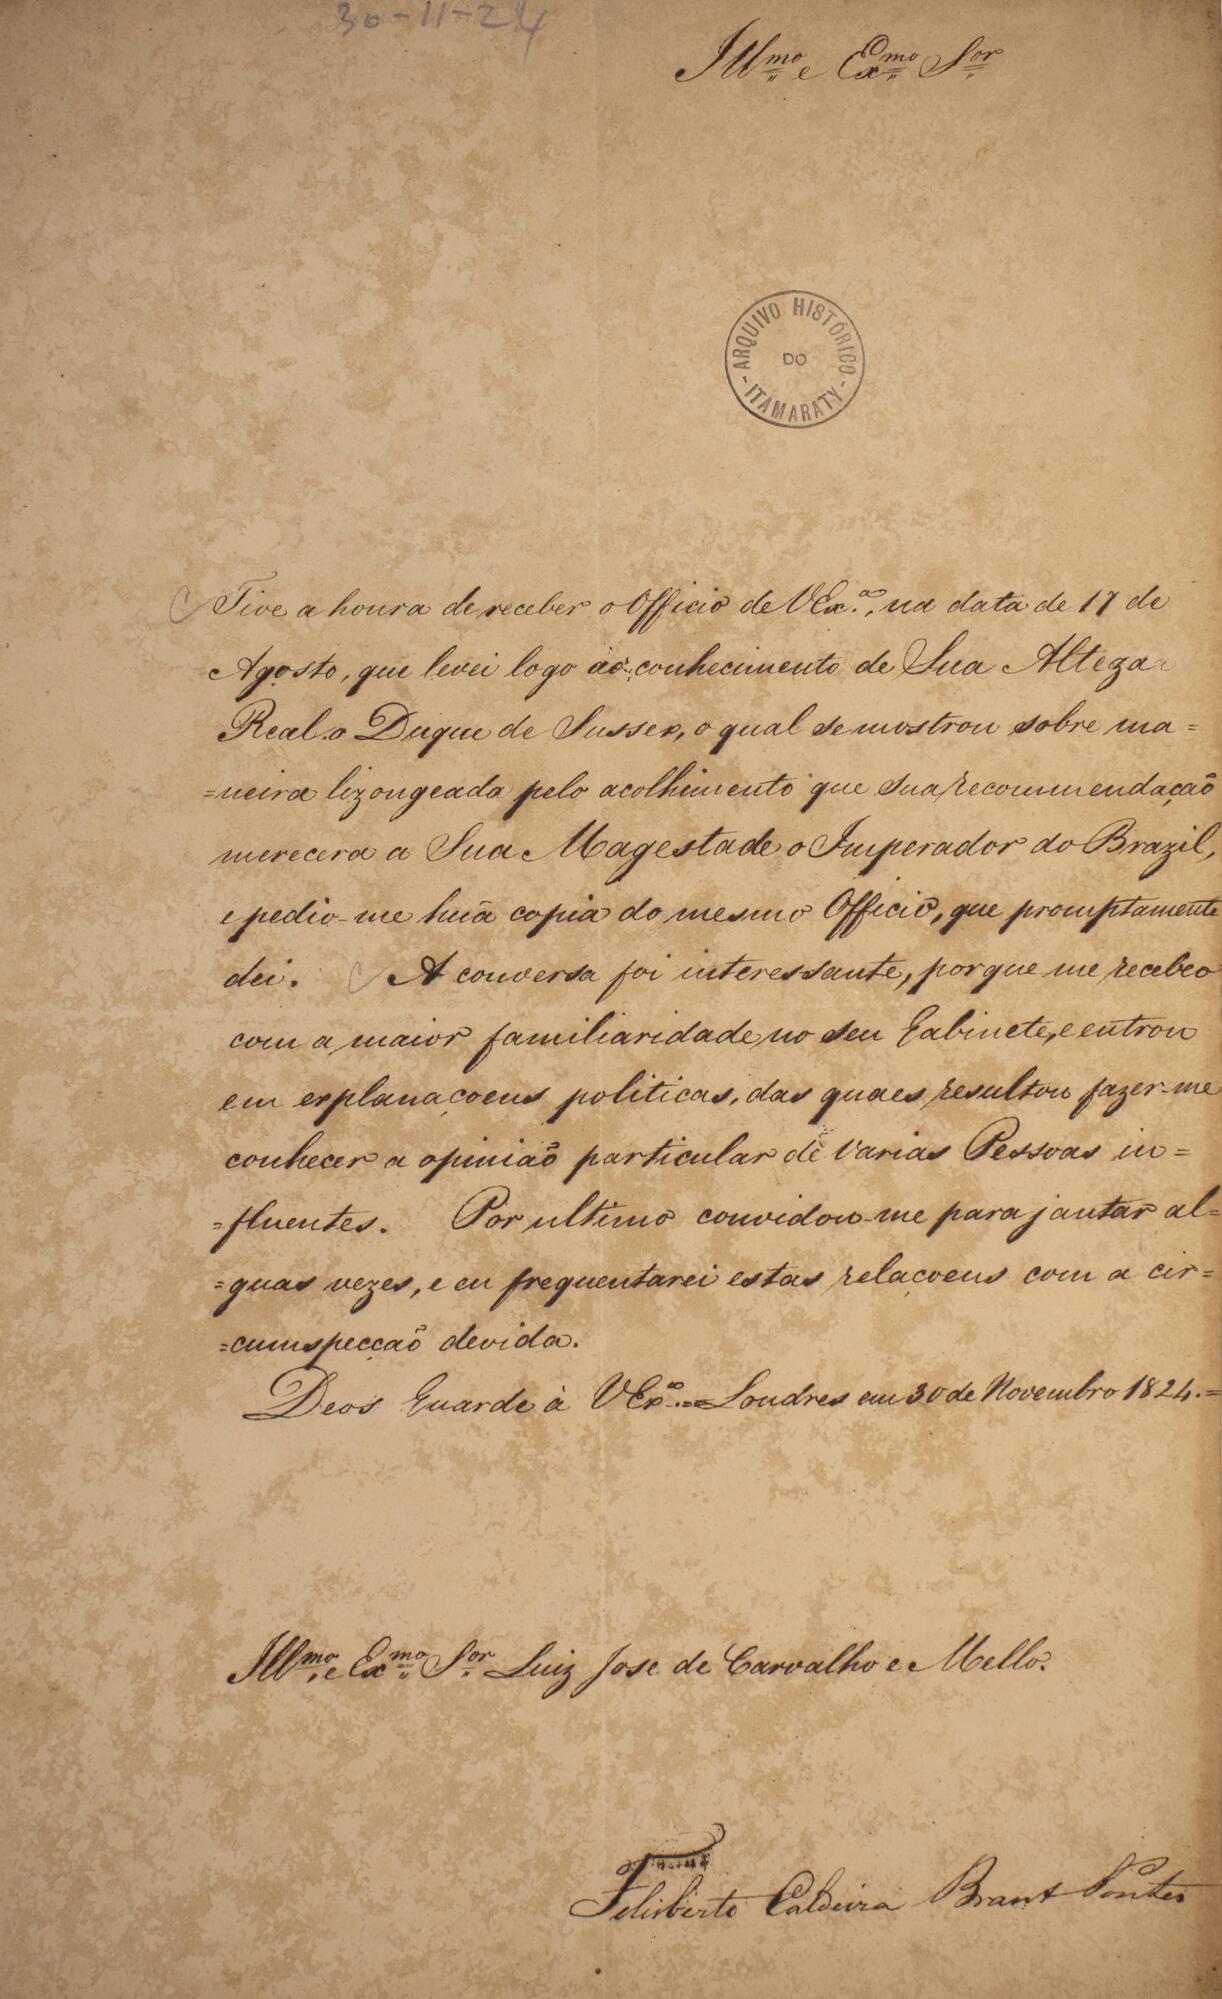 30-11-24
Illmo e Exmo Sor
ARQUIVO HISTÓRICO
DO
- ITAMARATY -
Tive a honra de receber o Officio de VExa., na data de 17 de
Agosto, que levei logo ao conhecimento de Sua Alteza
Real o Duque de Sussex, o qual se mostrou sobre ma=
=neira lizongeada pelo acolhimento que sua recommendação
merecera a Sua Magestade o Imperador do Brazil,
e pedio-me huã copia do mesmo Officio, que promptamente
dei. A conversa foi interessante, porque me recebeo
com a maior familiaridade no seu Gabinete, e entrou
em explanaçoens politicas, das quaes resultou fazer-me
conhecer a opinião particular de varias Pessoas in=
=fluentes. Por ultimo convidou-me para jantar al=
=guas vezes, e eu frequentarei estas relaçoens com a cir=
=cumspecção devida.
Deos Guarde à VExa. = Londres em 30 de Novembro 1824. =
Illmo. e Exmo. Sor. Luiz Jose de Carvalho e Mello.
Felisberto Caldeira Brant Pontes